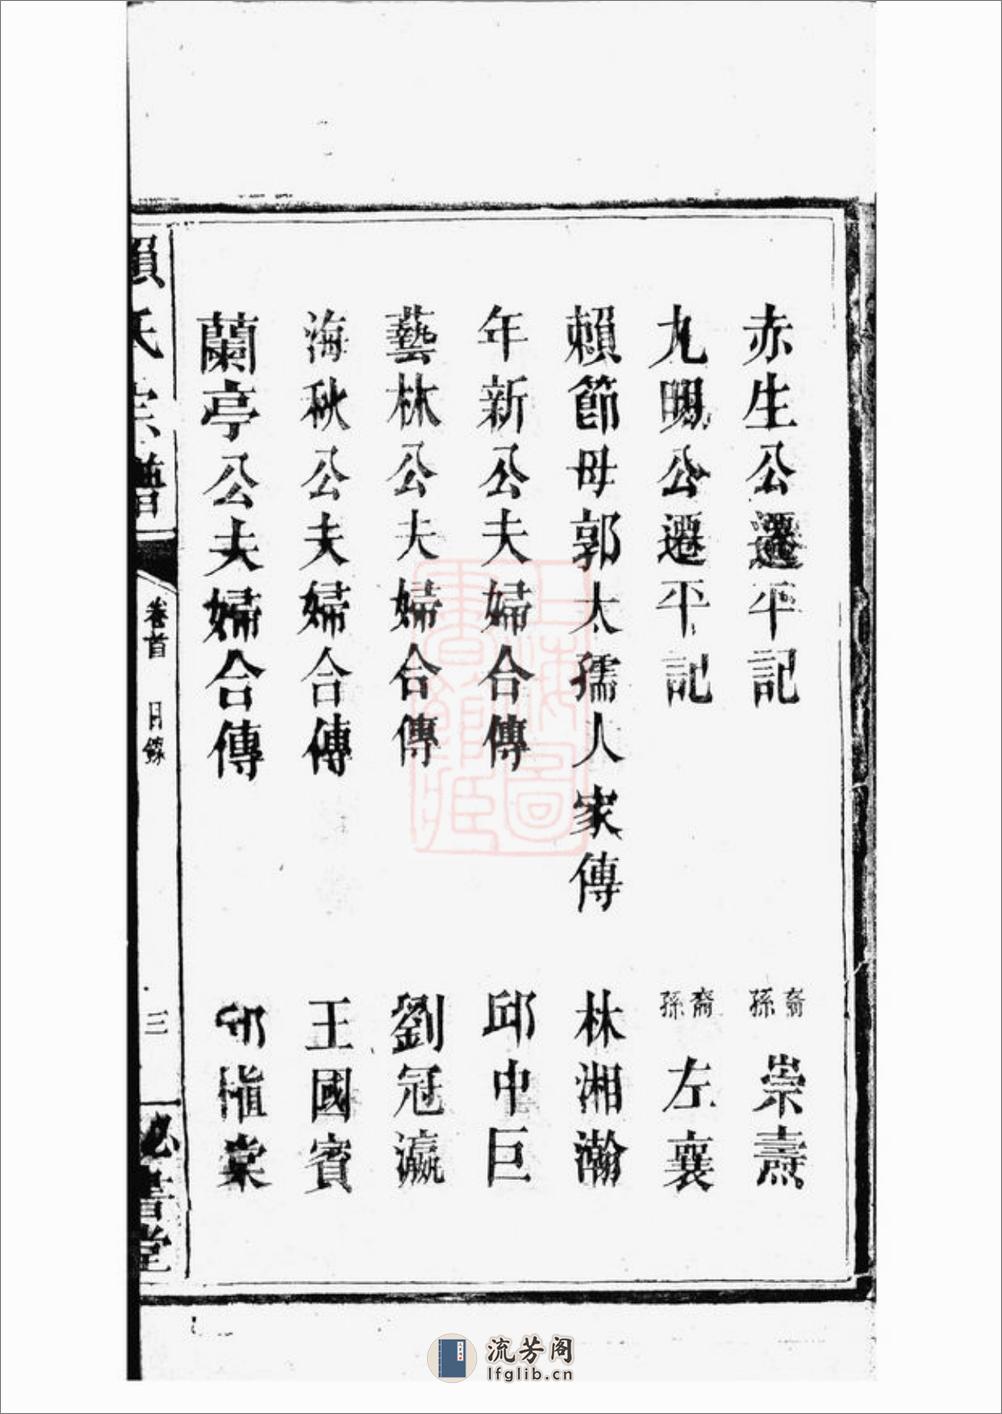 赤生公遷平記 裔孫 崇燾
九賜公遷平記 裔孫 左襄
賴節母郭太孺人家傳 林湘瀚
年新公夫婦合傳 邱中巨
藝林公夫婦合傳 劉冠瀛
海秋公夫婦合傳 王國賓
蘭亭公夫婦合傳 棠
賴氏宗譜 卷首 目錄 三 書堂
上海圖書館藏
流芳阁
lfglib.cn